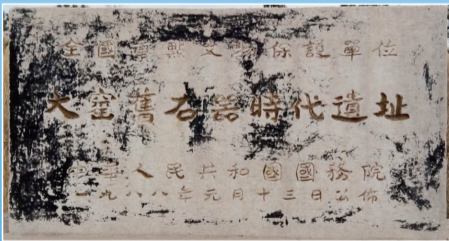 全國重點文物保護單位
大窑舊石器時代遺址
中華人民共和國國務院
一九八八年元月十三日公佈